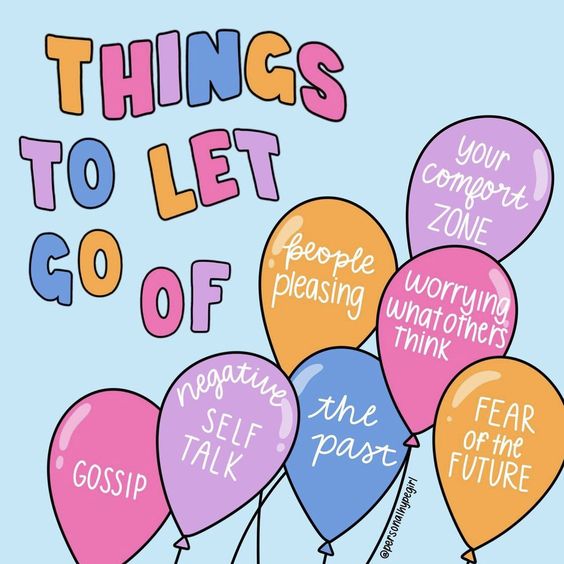 THINGS
TO LET
GO OF
your
comfort
ZONE
people
pleasing
worrying
what others
THINK
negative
SELF
TALK
the
past
FEAR
OF the
FUTURE
GOSSIP
@personalhypegirl